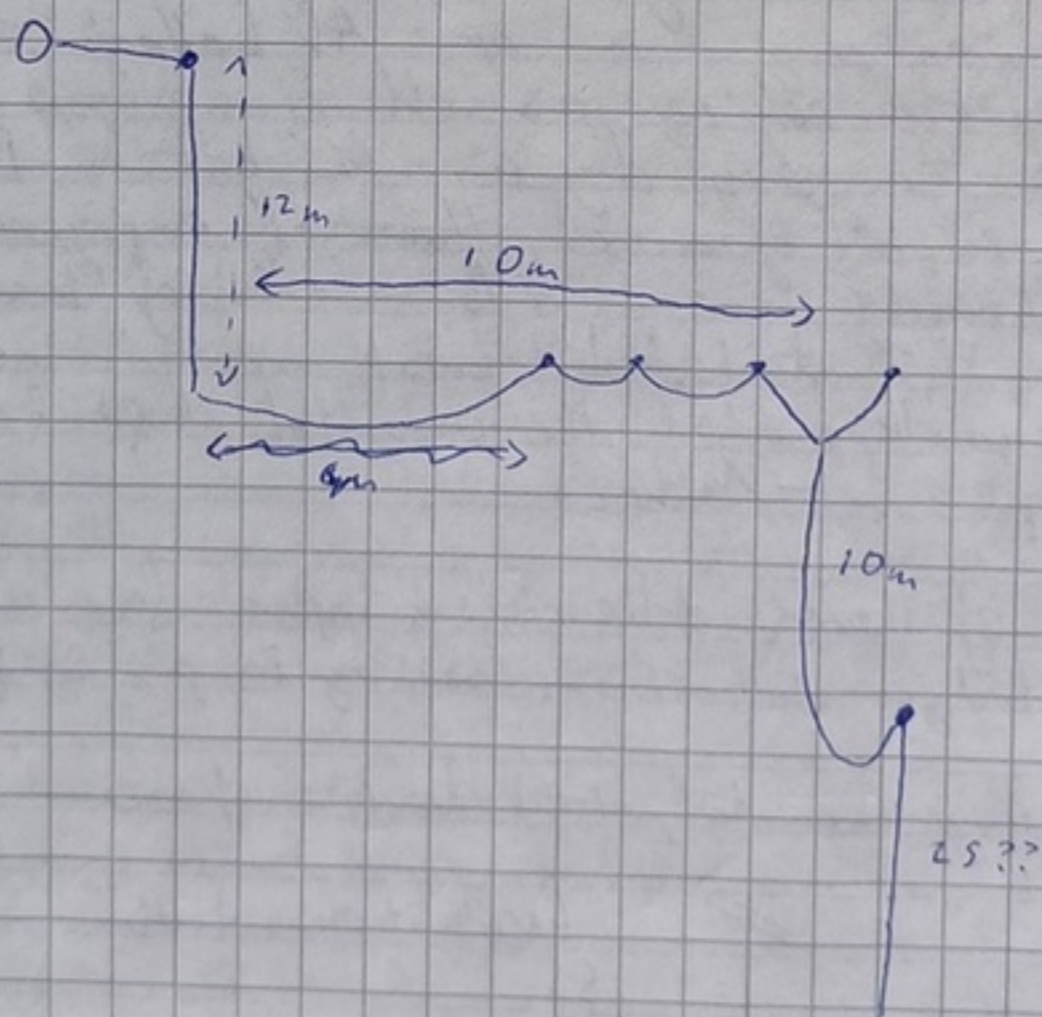 12m
10m
10m
25??